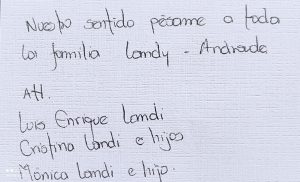 Nuestro sentido pèsame a toda
la familia Landy - Andrade
Att.
Luis Enrique Landi
Cristina Landi e hijos
Mónica Landi e hijo.